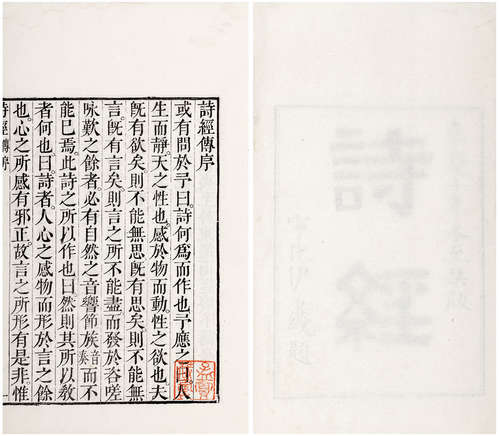 詩經傳序
或有問於予曰。詩何爲而作也予應之曰人
生而靜天之性也。感於物而動性之欲也夫
旣有欲矣則不能無思旣有思矣則不能無
言。旣有言矣則言之所不能盡而發於咨嗟
咏歎之餘者。必有自然之音響節族音奏而不
能已焉。此詩之所以作也曰然則其所以敎
者何也曰。詩者。人心之感物而形於言之餘
也。心之所感有邪正。故言之所形有是非惟
詩經傳序 一
詩經